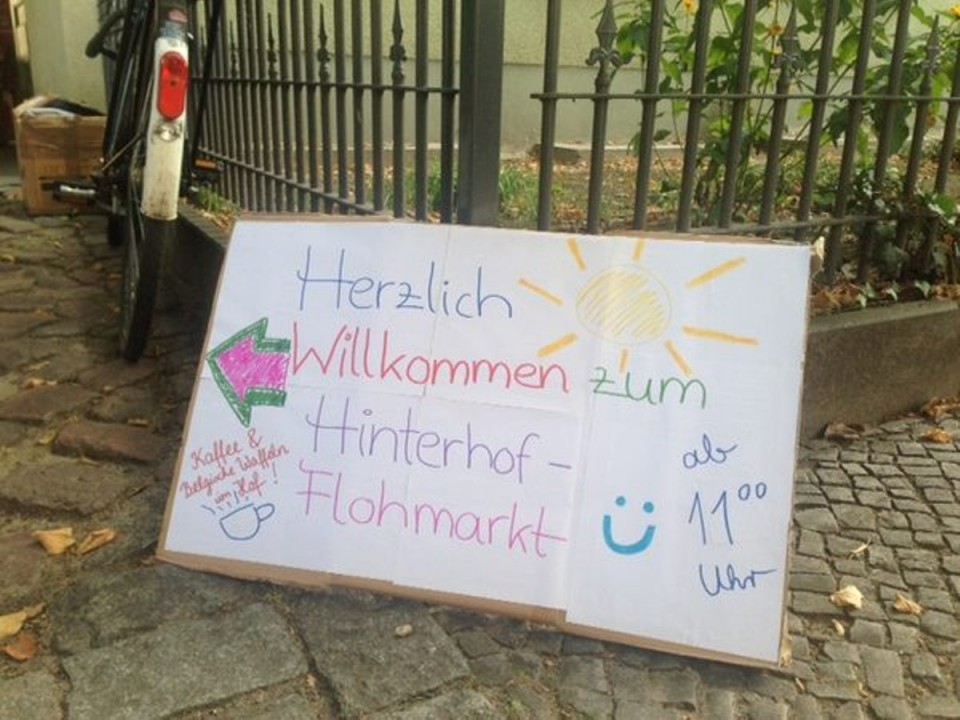 Herzlich
Willkommen zum
Hinterhof-
Flohmarkt
ab
11⁰⁰
Uhr
Kaffee &
Belgische Waffeln
im Hof!